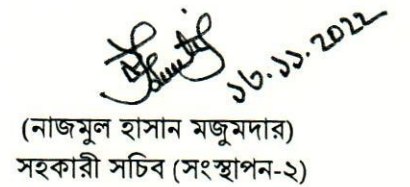 ১৩.১১.2022
(নাজমুল হাসান মজুমদার)
সহকারী সচিব (সংস্থাপন-২)